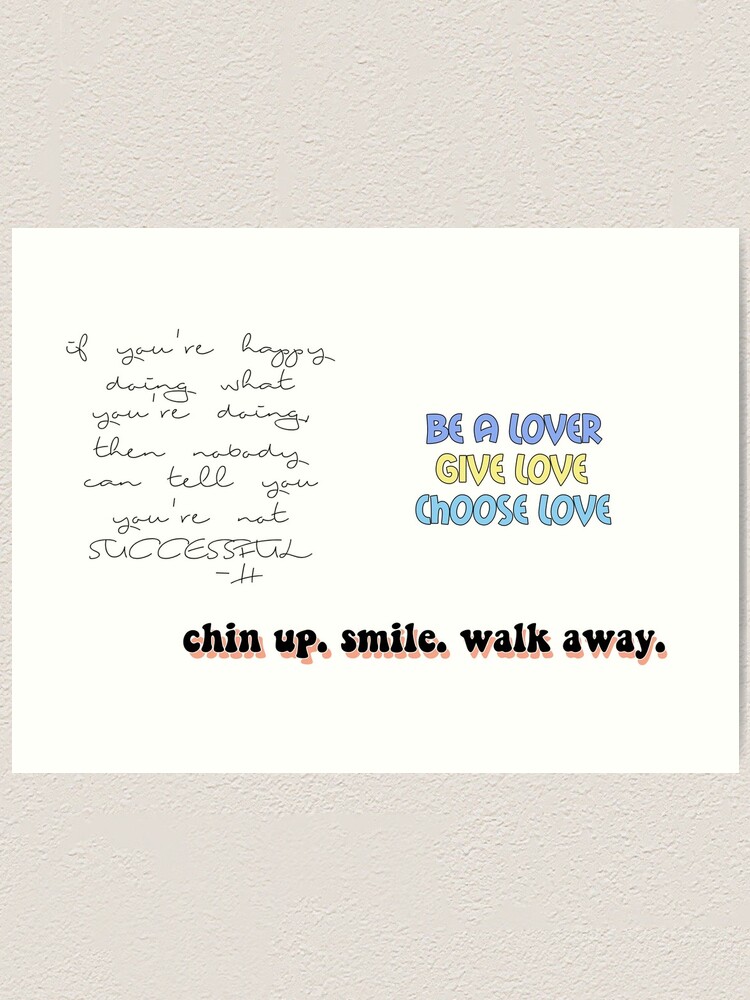 if you're happy
doing what
you're doing,
then nobody
can tell you
you're not
SUCCESSFUL
-H
BE A LOVER
GIVE LOVE
ChOOSE LOVE
chin up. smile. walk away.